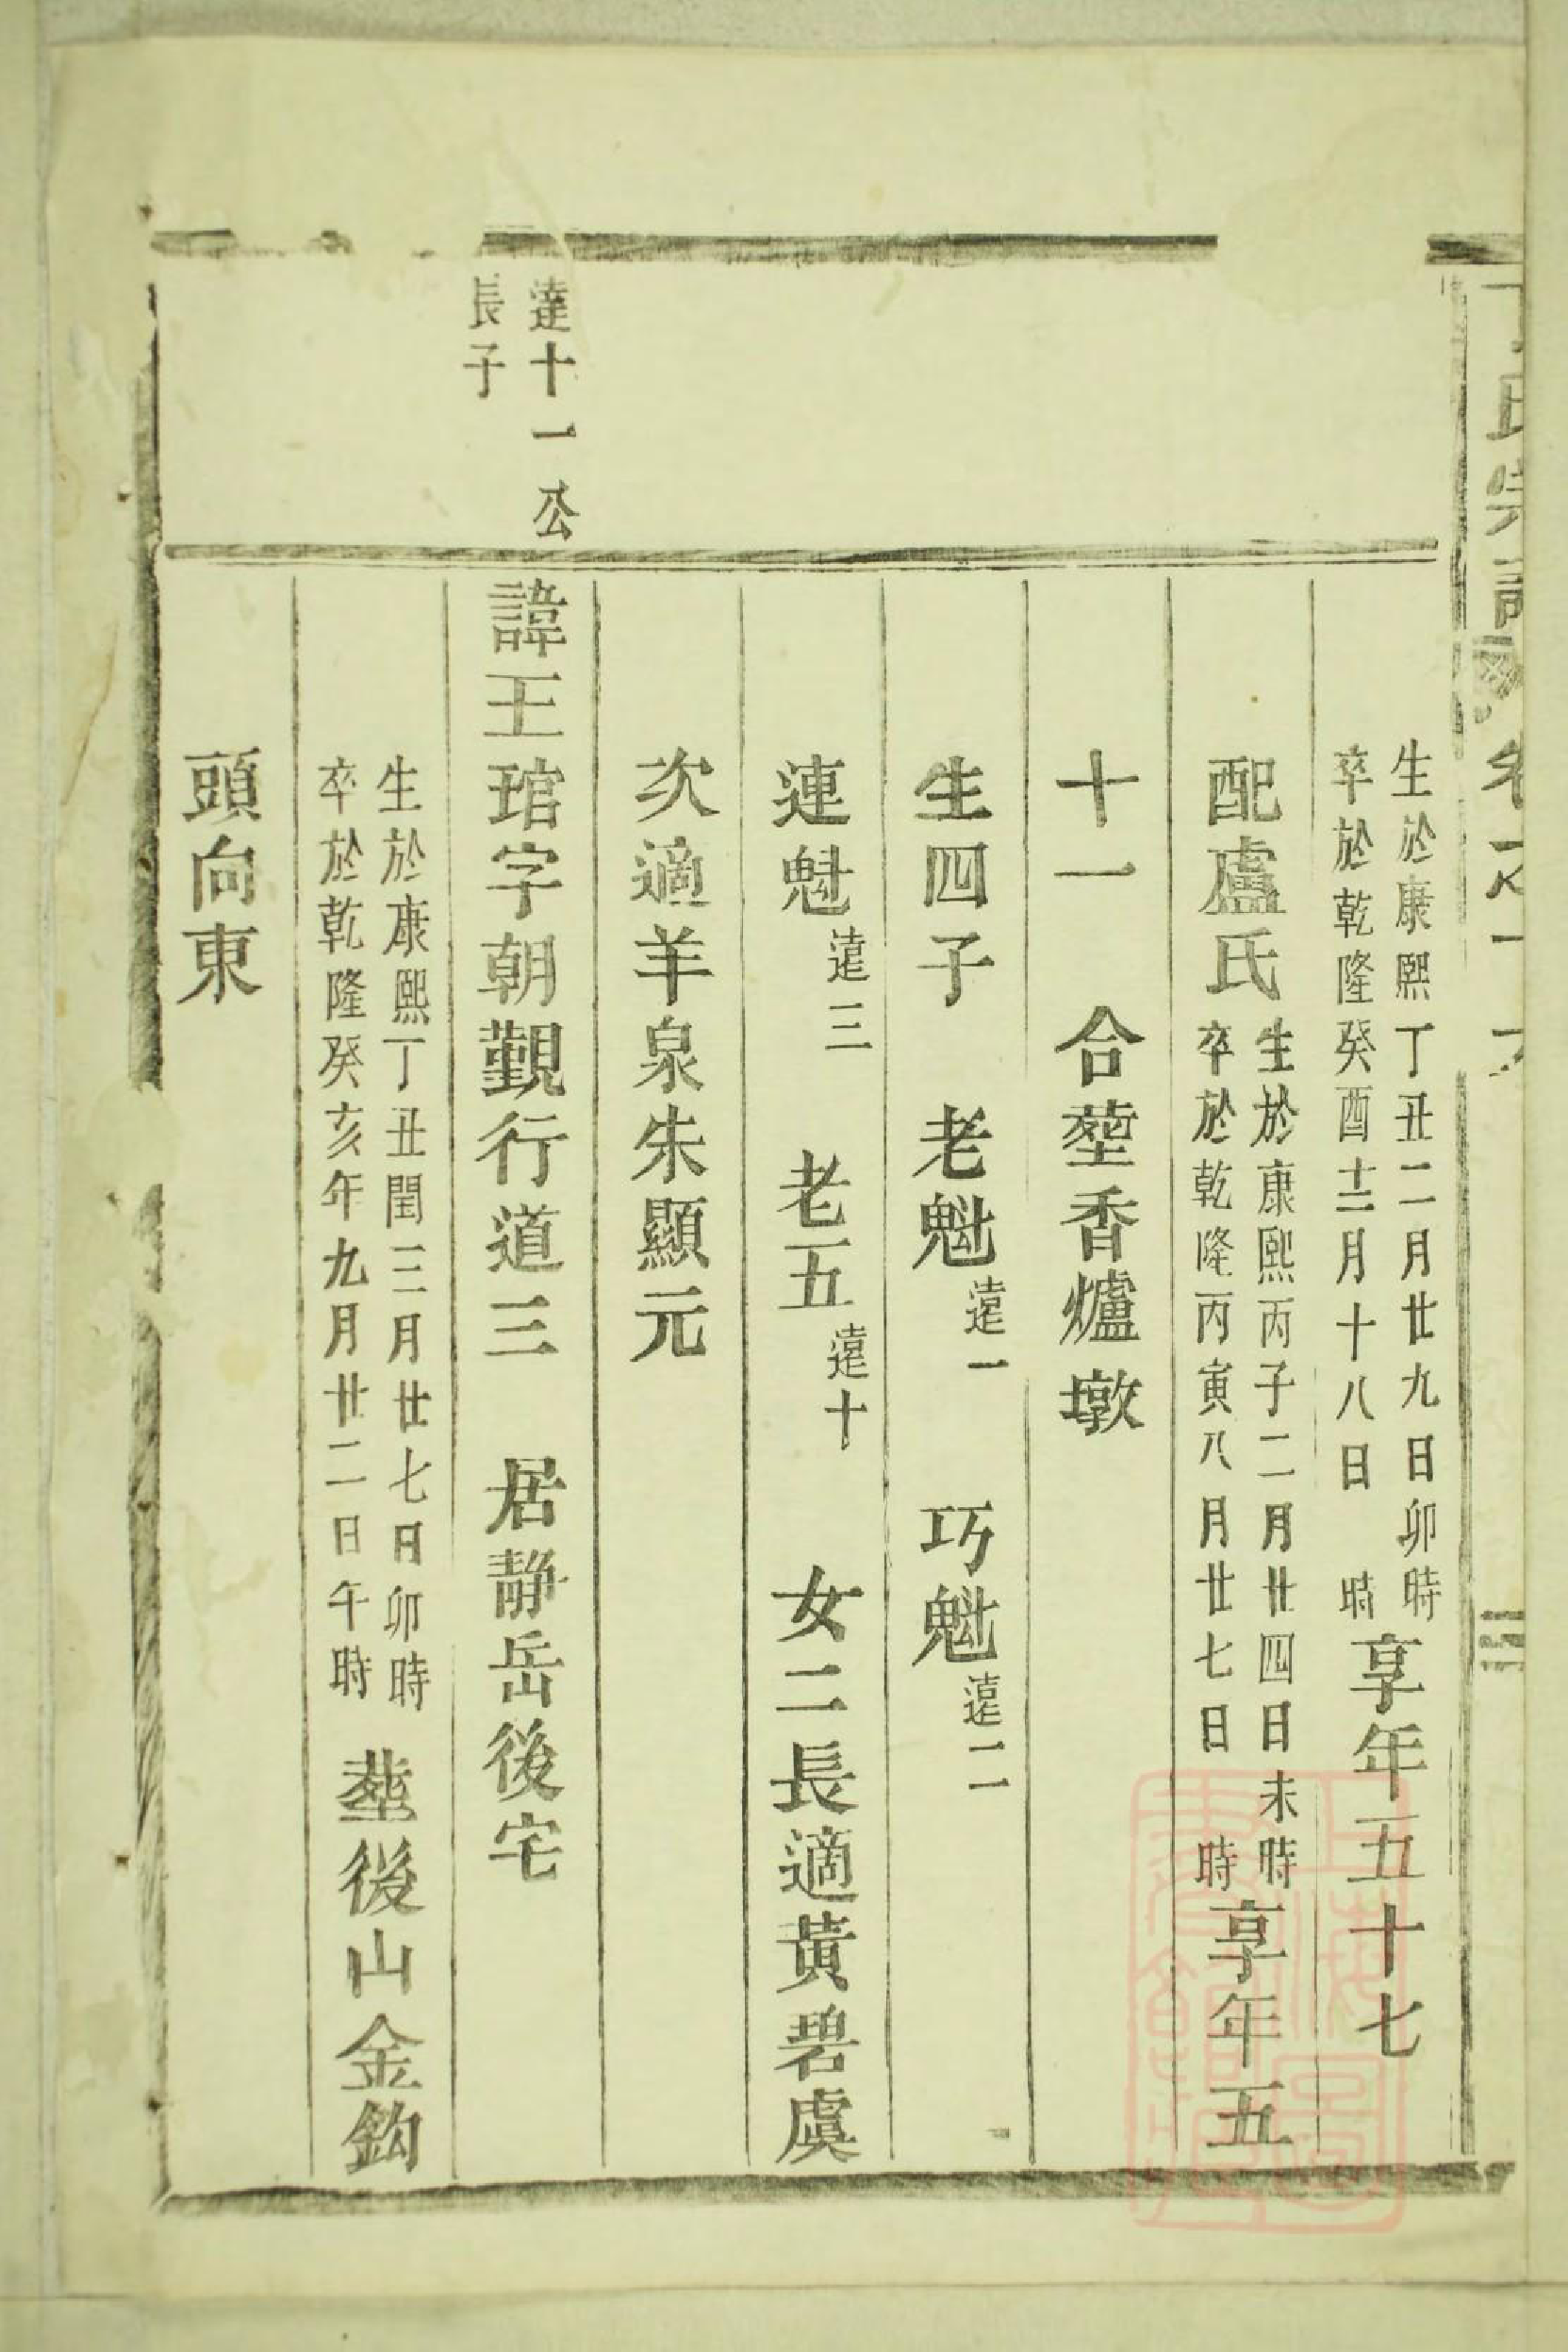 丁氏宗譜
生於康熙丁丑二月廿九日卯時
卒於乾隆癸酉十二月十八日　時
享年五十七
配盧氏
生於康熙丙子二月廿四日未時
卒於乾隆丙寅八月廿七日　時
享年五
十一　合塟香爐墩
生四子　老魁　遠一　巧魁　遠二
連魁　遠三　老五　遠十　女二長適黃碧虞
次適羊泉朱顯元
達十一公
長子
諱王琯字朝觀行道三　居靜岳後宅
生於康熙丁丑閏三月廿七日卯時
卒於乾隆癸亥年九月廿二日午時
塟後山金鈎
頭向東